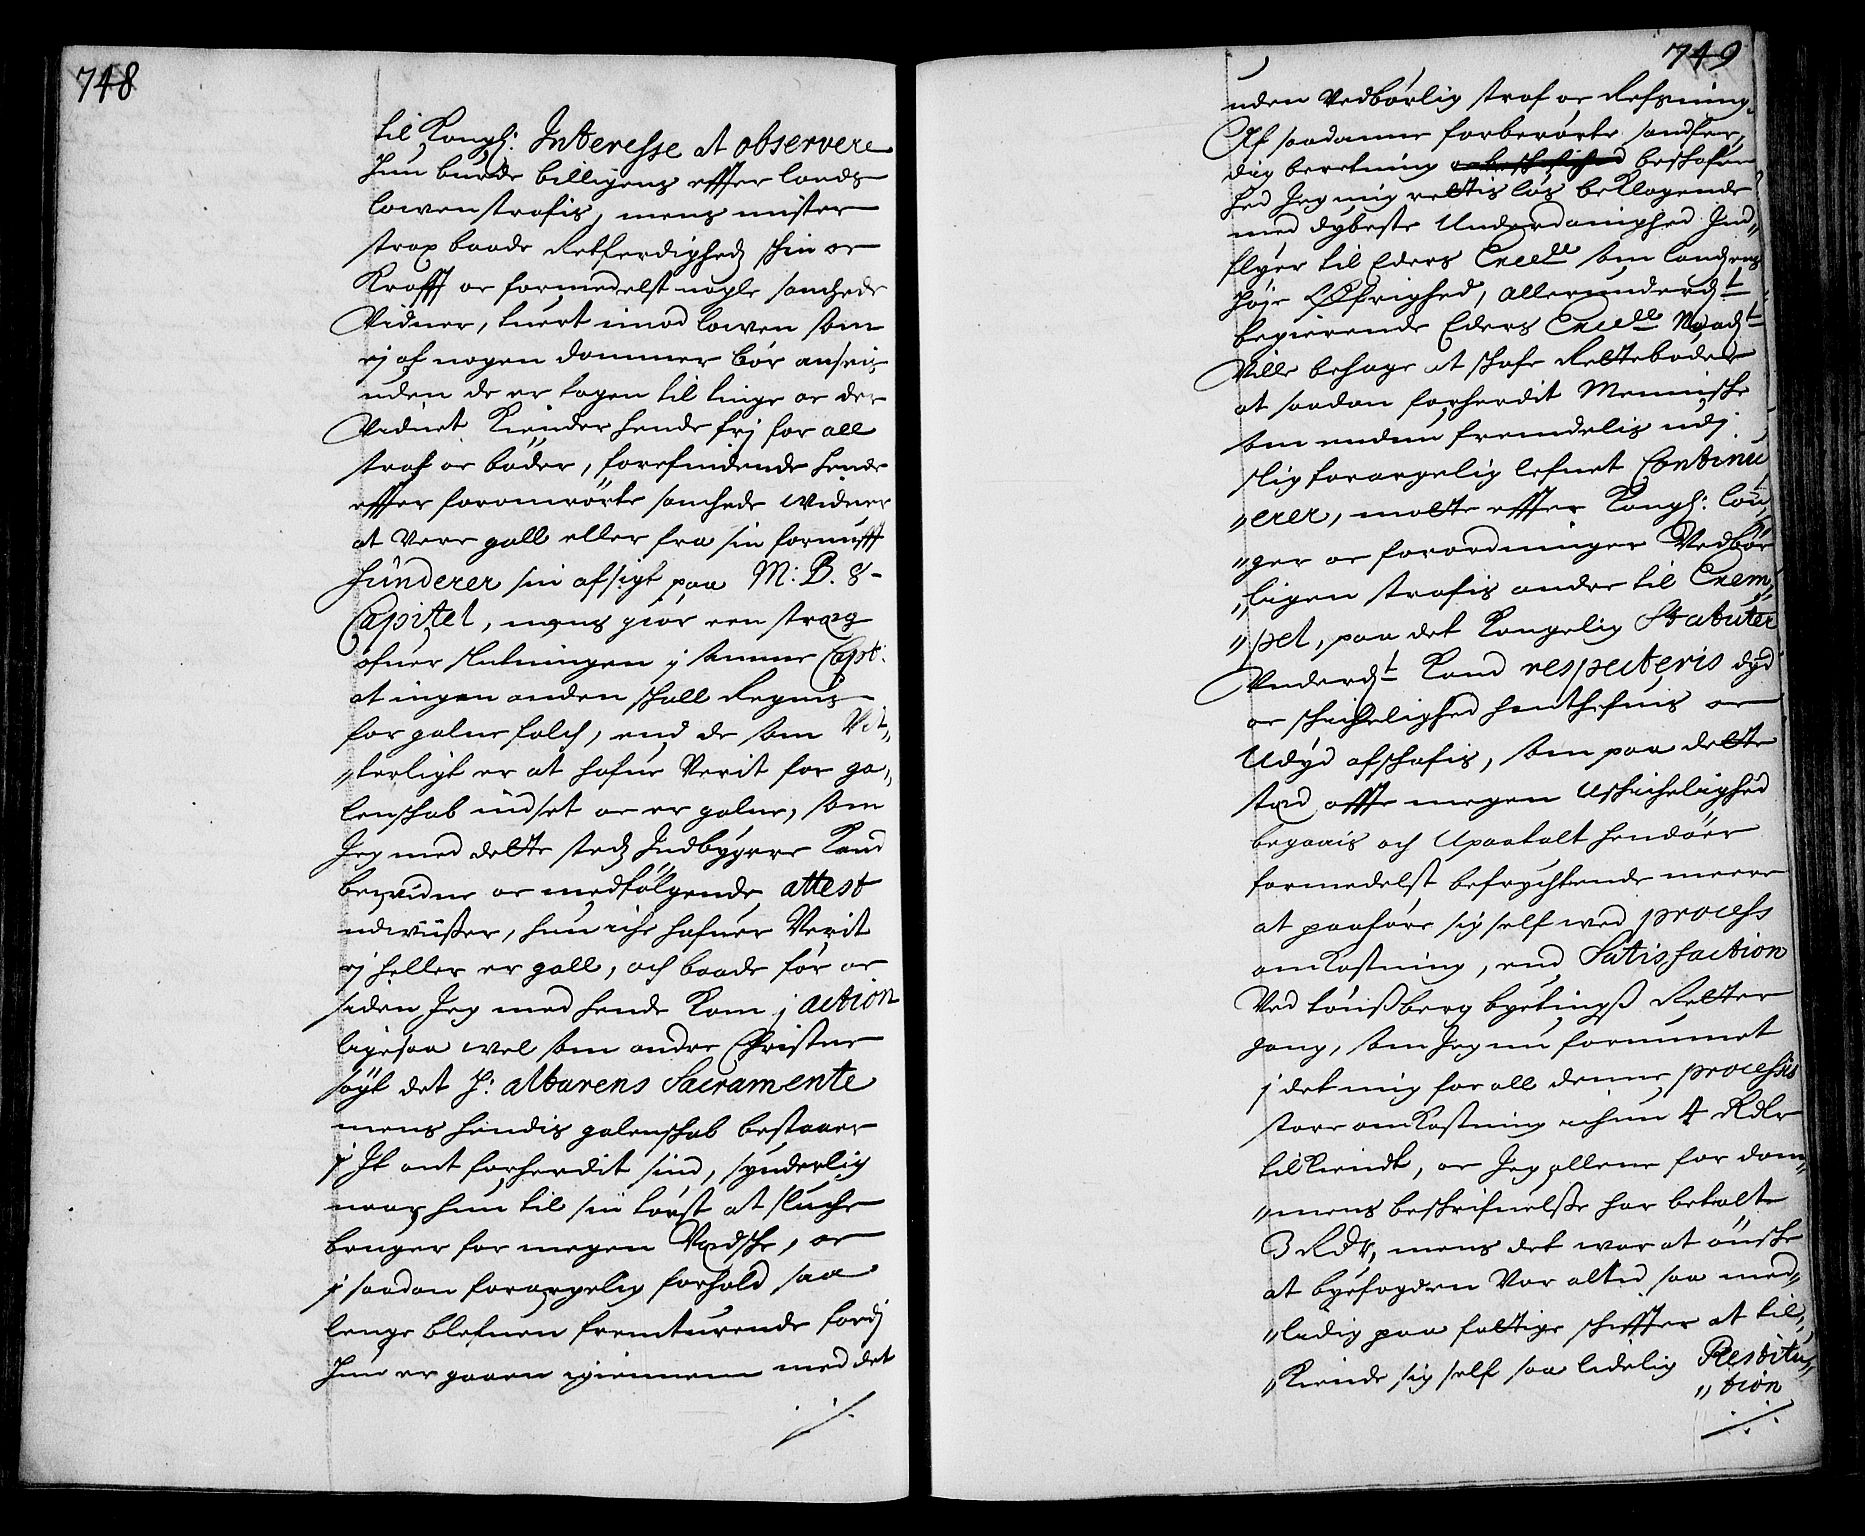 748
til Kongl: Interesse at observere
Hun burde billigens effter lands
lowen strafis, mens mister
strax baade Retferdigheds skin oc
Krafft oc formedelst nogle sanchede
Vidner, tuert imod lowen som
ej af nogen dommer bör ansees
uden de er tagen til tinge oc der
Vidnet. Kiender hende frj for all
straf oc böder, forefindende hende
effter foromrörte sanchede widner
at Vere gall eller fra sin fornufft
funderer sin afsigt paa M: B. 8-
Capitel, mens giör een strag
ofuer slutningen j samme Capt:
at ingen anden skall Regnis
for galne folch, end de som Vit„
„terligt er at hafue Verit for ga„
lenskab indset oc er galne, som
Jeg med dette steds Indbyggere Kand
bewidne oc medfölgende attest
udwiißer, hun iche hafuer Verit
ej heller er gall, och baade för oc
siden Jeg med hende Kom j action
ligesaa wel som andre Christne
sögt det H: altarens Sacramente
mens hendis galenskab bestaaer
j It ont forherdit sind, synderlig
naar hun til sin törst at sluche
bruger for megen Vædske, oc
j saadan forargelig forhold saa
lenge blefuen fremturende fordj
Hun er gaaen igiennem med det
./.
749
uden Vedbörlig straf oc Refsning.
Af saadanne forberörte sandfer„
dig beretning beskafen
hed Jeg mig rettislös beklagende
med dybeste Underdanighed Ind„
flyer til Eders Excell som landsens
höje Öfrighed, allerunderdt
begierende Eders Excell Naadt
Ville behage at skafe Retteboder
at saadan forherdit Menniske
som endnu fremdelis udj
slig forargelig lefnet Continu
„erer, motte effter Kongl: lou„
„ger oc forordninger Vedbör
„ligen strafis andre til Exem„
„pel, paa det Kongelig Statuter
Vnderdt Kand respecteris dyd
oc skickelighed hanthefuis oc
Udyd afskafis, som paa dette
sted offte megen Uskickelighed
begaais och Upaatalt hendöer
formedelst befrychtende meere
at paaföre sig self med process
omkostning, end Satisfaction
Ved tönßberg byetingß Retter
gang, som Jeg nu fornummet
j det mig for all denne processis
store omkostning ichun 4 Rdlr
tilkiendt, oc Jeg allene for dom„
„mens beskrifuelße har betalt
3 Rdr, mens det war at önske
at byefogden Var altid saa med„
„lidig paa fattige skiffter at til„
„kiende sig self saa lidelig Restitu„
„tion
./.